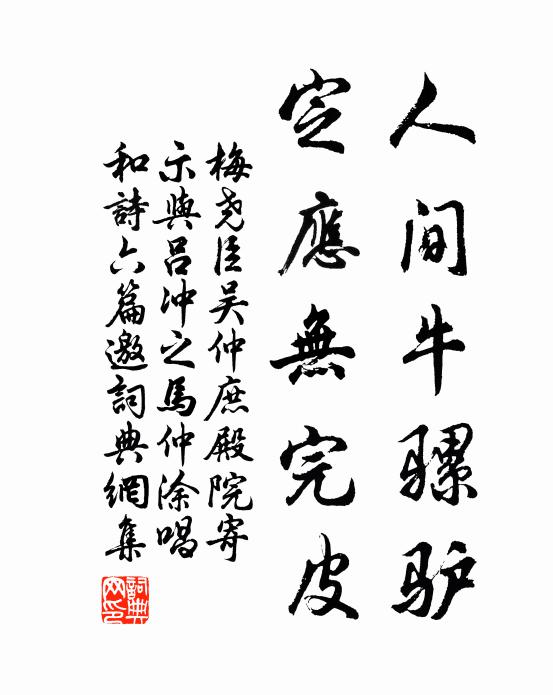 人间牛骡驴
定應無完皮
梅尧臣吴仲庶殿院寄
示與吕冲之馬仲涂唱
和詩六篇邀詞典網集
詞典網印